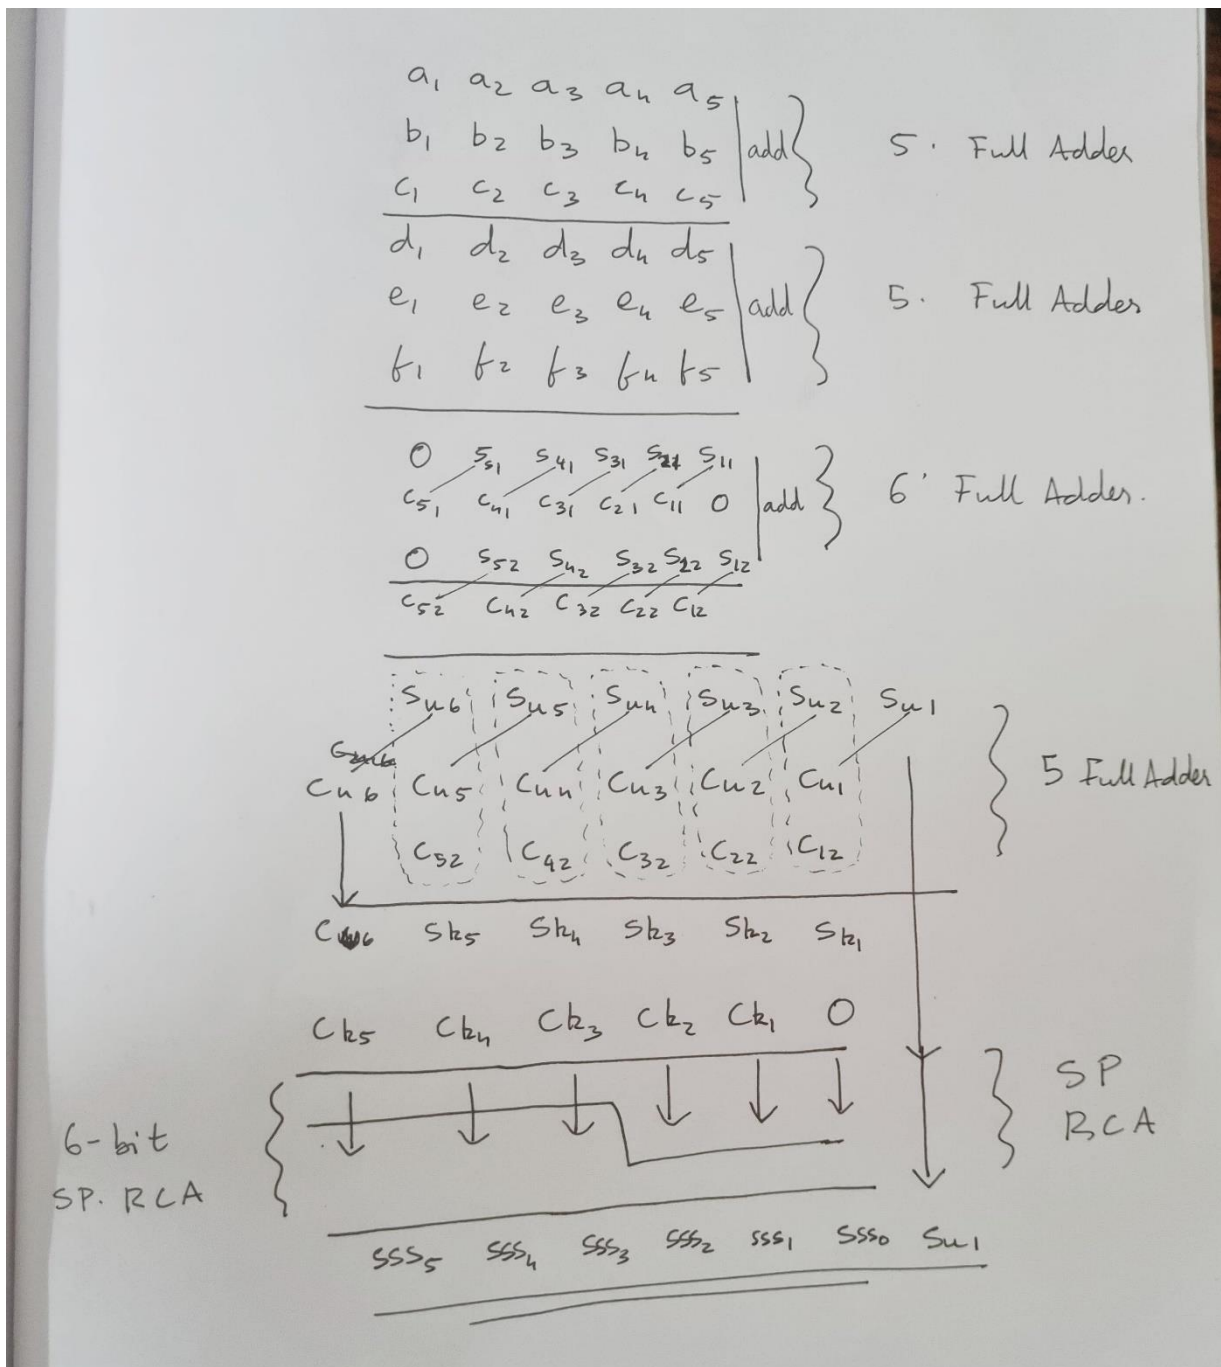 a₁ a₂ a₃ a₄ a₅
b₁ b₂ b₃ b₄ b₅ add 5. Full Adder
c₁ c₂ c₃ c₄ c₅
d₁ d₂ d₃ d₄ d₅
e₁ e₂ e₃ e₄ e₅ add 5. Full Adder
f₁ f₂ f₃ f₄ f₅
0 S₅₁ S₄₁ S₃₁ S₂₁ S₁₁
C₅₁ C₄₁ C₃₁ C₂₁ C₁₁ 0 add 6' Full Adder.
0 S₅₂ S₄₂ S₃₂ S₂₂ S₁₂
C₅₂ C₄₂ C₃₂ C₂₂ C₁₂
Su6 Su5 Su4 Su3 Su2 Su1
Cu6 Cu5 Cu4 Cu3 Cu2 Cu1 5 Full Adder
C₅₂ C₄₂ C₃₂ C₂₂ C₁₂
Cu6 Sk₅ Sk₄ Sk₃ Sk₂ Sk₁
Ck₅ Ck₄ Ck₃ Ck₂ Ck₁ 0
SP
RCA
6-bit
SP. RCA
SSS₅ SSS₄ SSS₃ SSS₂ SSS₁ SSS₀ Su1